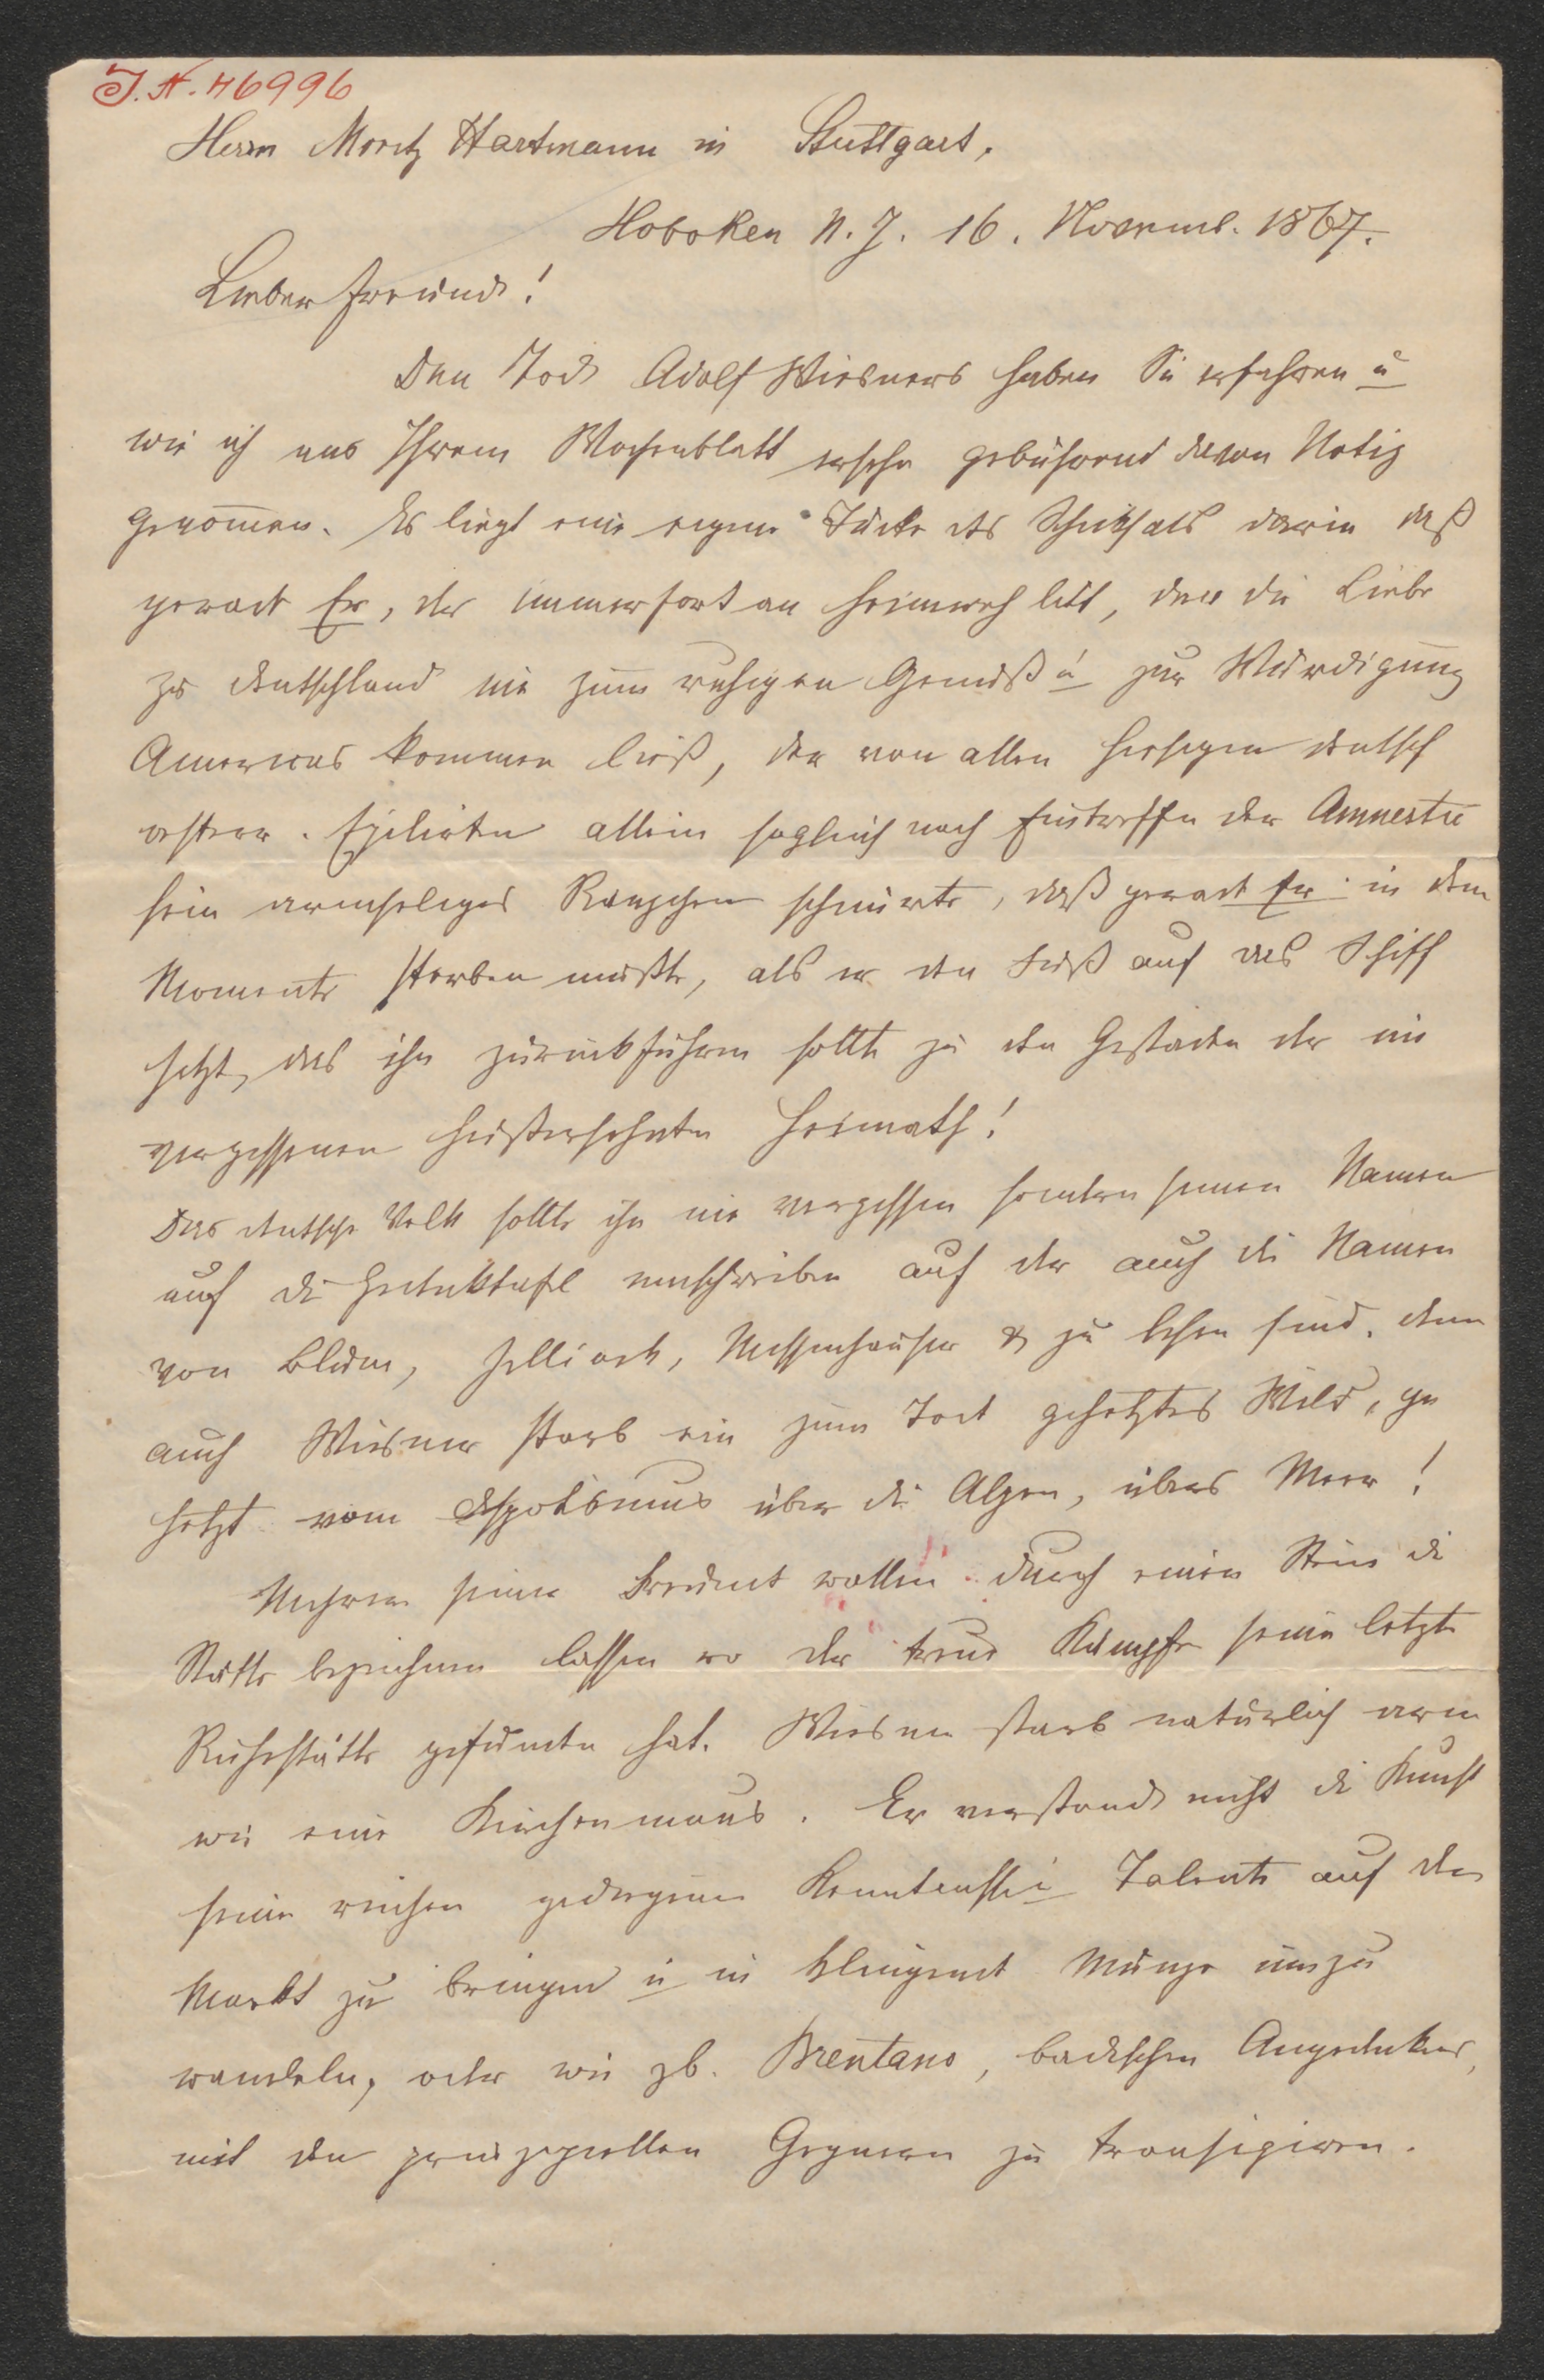 J. N. 46996
Herrn Moritz Hartmann in Stuttgart,
Hoboken N. J. 16. Novemb. 1867.
Lieber Freund!
Den Tod Adolf Wiesners haben Sie erfahren u
wie ich aus Ihrem Wochenblatt ersehe gebührend davon Notiz
genom̄en. Es liegt eine eigene Tücke des Schicksals darin daß
gerade Er, der immerfort an Heimweh litt, den die Liebe
zu Deutschland nie zum ruhigen Genuß u zur Würdigung
Americas kommen ließ, der von allen hiesigen deutsch
oesterr. Exilirten allein sogleich nach Eintreffen der Amnestie
sein armseliges Ränzchen schnürte, daß gerade Er in dem
Momente sterben mußte, als er den Fuß auf das Schiff
setzt, das ihn zurückführen sollte zu den Gestaden der nie
vergessenen heißersehnten Heimath!
Das deutsche Volk sollte ihn nie vergessen sondern seinen Namen
auf die Gedenktafel einschreiben auf der auch die Namen
von Blum, Jellinek, Messenhauser & zu lesen sind, denn
auch Wiesner starb ein zum Tode gehetztes Wild, ge
hetzt vom Despotismus über die Alpen, übers Meer!
Mehrere seiner Freunde wollen durch einen Stein die
Stätte bezeichnen lassen wo der treue Kämpfer seine letzte
Ruhestätte gefunden hat. Wiesner starb natürlich arm
wie eine Kirchenmaus. Er verstand nicht die Kunst
seine reichen gediegenen Kenntnisse u Talente auf den
Markt zu bringen u in klingende Münze umzu
wandeln, oder wie zb. Brentano, badischen Angedenkens,
mit den prinzipiellen Gegnern zu transigiren.